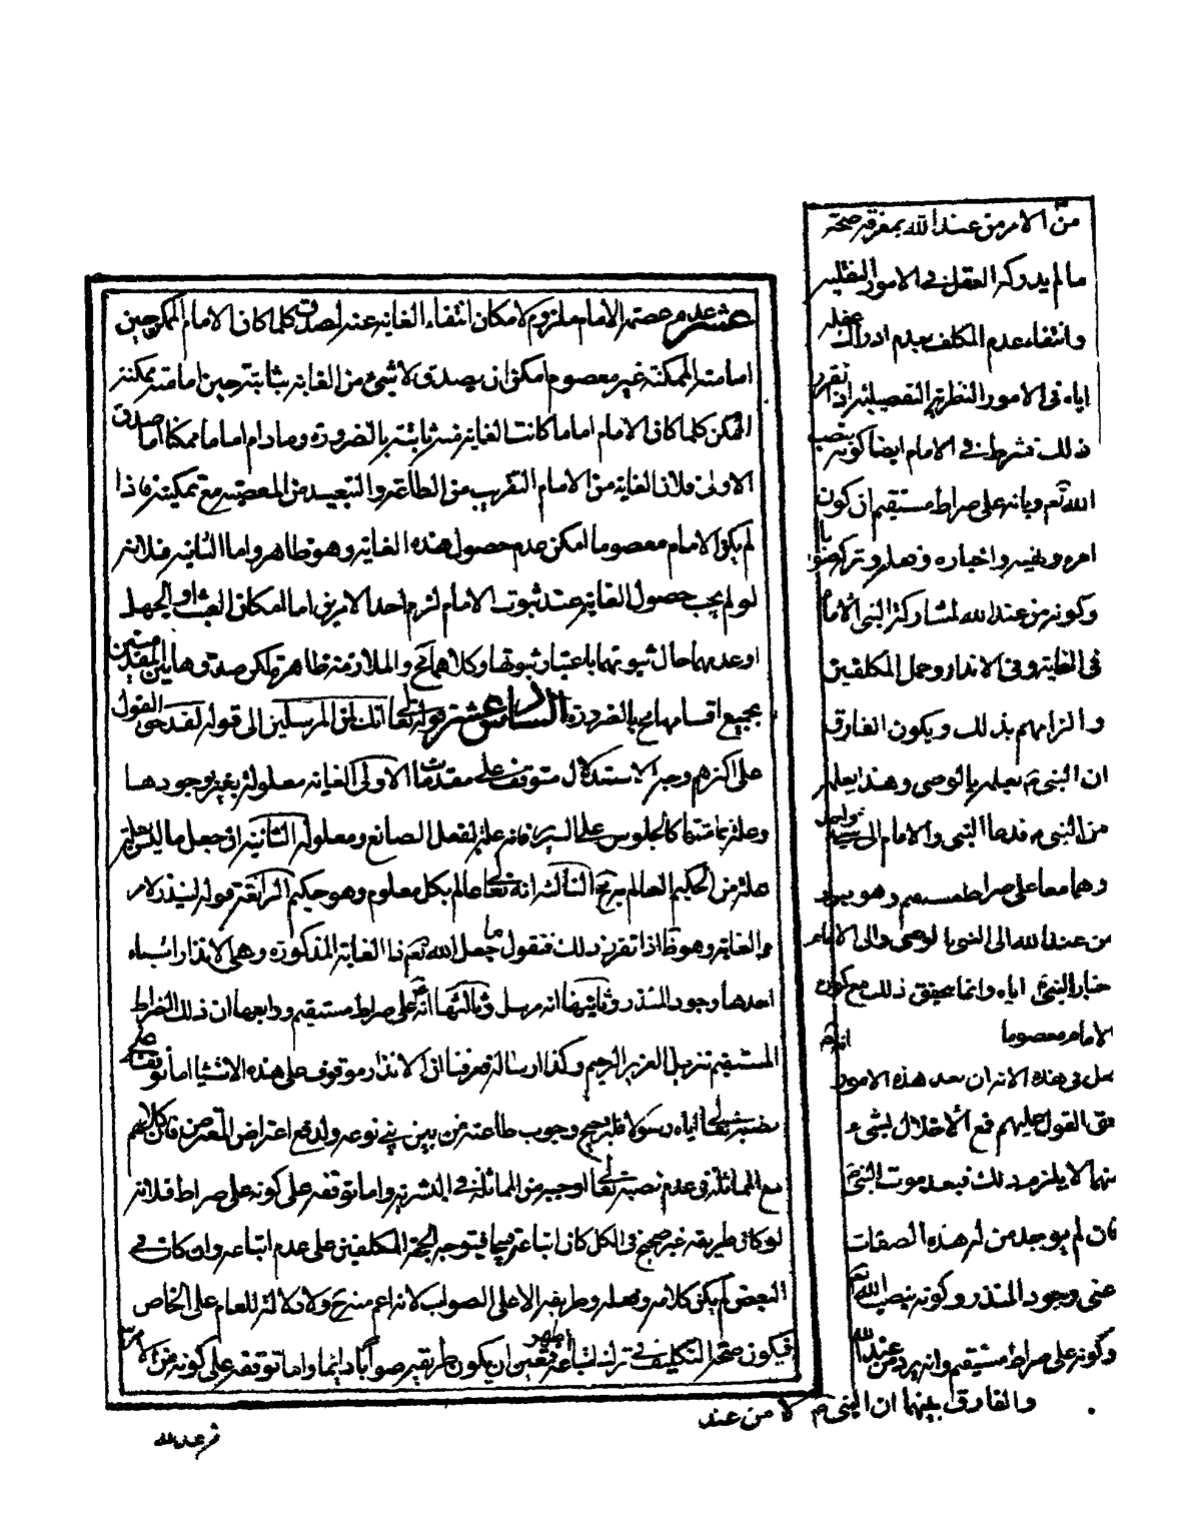 عشر عدم عصمة الامام ملزوم لامكان انتفاء الغاية عند لصدق كلما كان الامام الممكن حين
امامته الممكنة غير معصوم امكن ان يصدق لا شئ من الغاية بثابتة حين امامته ممكنة
الممكن كلما كان الامام اماما كانت الغاية منه ثابتة بالضرورة ومادام اماما ممكنا اما صدق
الاولى فلان الغاية من الامام التقريب من الطاعة والتبعيد من المعصية مع تمكينه فاذا
لم يكن الامام معصوما امكن عدم حصول هذه الغاية وهو ظاهر واما الثانية فلانه
لو لم يجب حصول الغاية عند ثبوت الامام لزم احد الامرين اما امكان العبث او الجهل
او عدمهما حال ثبوتهما باعتبار ثبوتها وكلاهما مح والملازمة ظاهرة لكن صدق هاتين المقدمتين
بجميع اقسامها مح بالضرورة السادس عشر قوله تعالى انك لمن المرسلين الى قوله لقد حق القول
على اكثرهم وجه الاستدلال متوقف على مقدمات الاولى الغاية معلولة بوجودها
وعلة بماهيتها كالجلوس على السرير فانه علة لفعل الصانع ومعلوله الثانية ان جعل ما ليس بعلة
علة من الحكيم العالم قبيح الثالثة انه تعالى عالم بكل معلوم وهو حكيم الرابعة قوله لتنذر لام
الغاية وهو ظ اذا تقرر ذلك فنقول ما جعل الله تعم هذا الغاية المذكورة وهى الانذار اشياء
احدها وجود المنذر وثانيها انه مرسل وثالثها انه على صراط مستقيم ورابعها ان ذلك الصراط
المستقيم تنزيل العزيز الرحيم وكذا ارساله فعرفنا ان الانذار موقوف على هذه الاشياء اما توقفه على
نصبه تعالى اياه رسولا فلترجيح وجوب طاعته من بين بنى نوعه ولدفع اعتراض المعترض فان كلامهم
مع المماثلة فى عدم نصبه تعالى اوجه من المماثلة فى البشرية واما توقفه على كونه على صراط فلانه
لو كان طريقه غير صحيح فى الكل كان اتباعه قبيحا فيتوجه الحجة للمكلفين على عدم اتباعه وان كان فى
البعض لم يكن كلامه وفعله وطريقه الاعلى الصواب لانه اعم منه ح ولا دلالة للعام على الخاص
فيكون حجة المكلف فى ترك اتباعه اظهر فتعين ان يكون طريقه صوابا دايما واما توقفه على كونه من الامر
من عند الله
من الامر من عند الله بمعرفة صحته
ما لم يدركه العقل فى الامور العقلية
وانتفاء عدم المكلف بعدم ادراك عقله
اياه فى الامور النظرية التفصيلية اذا تقرر
ذلك فشرط فى الامام ايضا كونه بنصب
الله تعم وبانه على صراط مستقيم ان كون
امره ونهيه واخباره وفعله وتركه صوابا
وكونه من عند الله لمشاركة النبى الامام
فى الغاية وفى الانذار وحمل المكلفين
والزامهم بذلك ويكون الفارق
ان النبى م يعلم بالوحى وهذا يعلم
من النبى م فدعا النبى والامام الى شئ واحد
وهما معا على صراط مستقيم وهو يرد
من عند الله الى النبى بالوحى والى الامام
اخبار النبى م اياه وانما يتحقق ذلك مع كون
الامام معصوما
بعد هذه الامور
حق القول عليهم فمع الاخلال بشئ
منها لا يلزم ذلك فبعد موت النبى م
فان لم يوجد من له هذه الصفات
عنى وجود المنذر وكونه بنصب الله تعم
وكونه على صراط مستقيم وانه يرد من عند الله
والفارق بينهما ان النبى م لا من عند